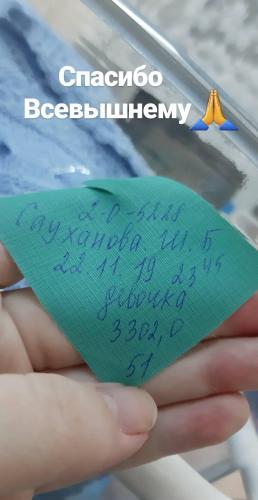 Спасибо
Всевышнему🙏
2-0-5228
Сауханова. Ш. Б
22.11.19 23⁴⁵
девочка
3302,0
51